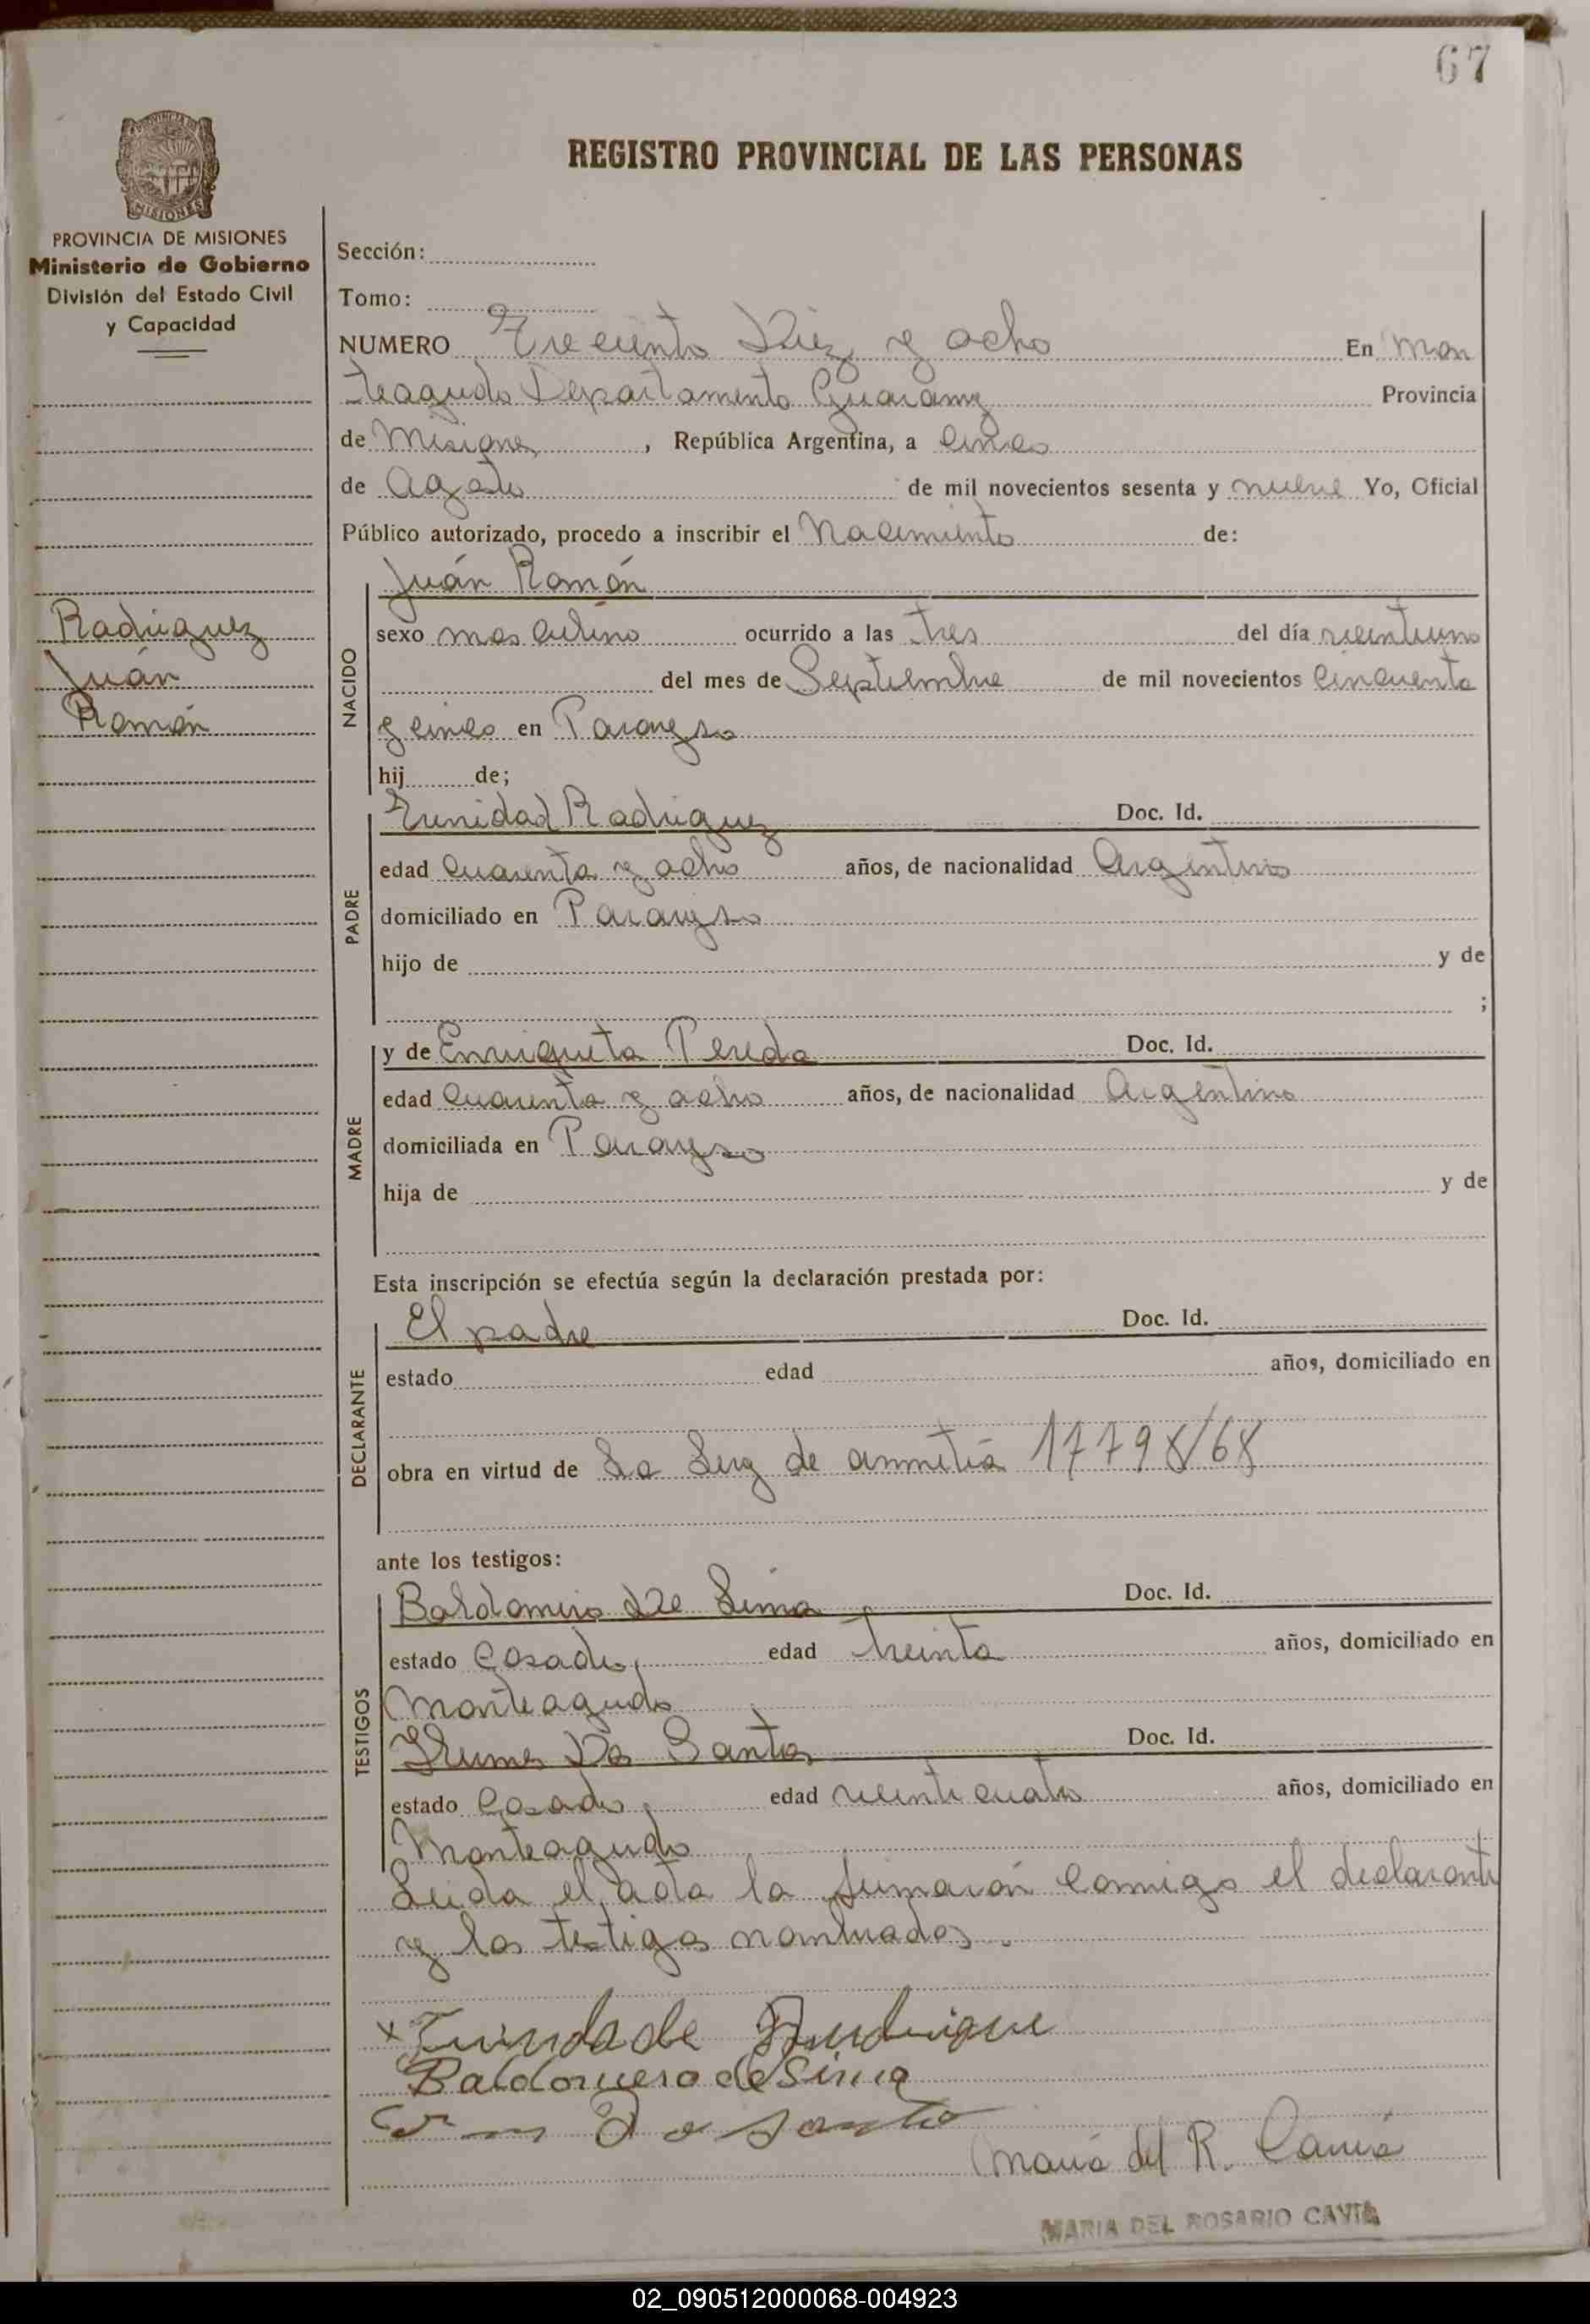 67
REGISTRO PROVINCIAL DE LAS PERSONAS
MISIONES
PROVINCIA DE MISIONES
Ministerio de Gobierno
División del Estado Civil
y Capacidad
Radriguez
Juán
Ramón
Sección:
Tomo:
NUMERO Treciento Diez y ocho En Mon
teagudo Departamento Guarany Provincia
de Misiones, República Argentina, a cinco
de Agosto de mil novecientos sesenta y nueve Yo, Oficial
Público autorizado, procedo a inscribir el Nacimiento de:
NACIDO
Juán Ramón
sexo masculino ocurrido a las tres del día veintiuno
del mes de Septiembre de mil novecientos cincuenta
y cinco en Paraiyso
hij de;
PADRE
Trinidad Radriguez Doc. Id.
edad cuarenta y ocho años, de nacionalidad Argentino
domiciliado en Paraiyso
hijo de y de
;
MADRE
y de Enriqueta Pereda Doc. Id.
edad cuarenta y ocho años, de nacionalidad Argentina
domiciliada en Paraiyso
hija de y de
Esta inscripción se efectúa según la declaración prestada por:
DECLARANTE
El padre Doc. Id.
estado edad años, domiciliado en
obra en virtud de La Ley de 17798/68
ante los testigos:
TESTIGOS
Baldomiro De Lima Doc. Id.
estado Casado, edad treinta años, domiciliado en
Monteagudo
Dos Santos Doc. Id.
estado Casado, edad veinticuatro años, domiciliado en
Monteagudo
Leida el acta la firmarón conmigo el declarante
y los testigos nombrados.
x Trindade
Baldomero de Lima
Santo
Maria del R. Cavia
MARIA DEL ROSARIO CAVIA
02_090512000068-004923